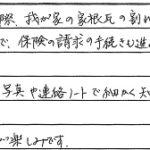 際、我が家の家根瓦の割れ
で、保険の請求の手続きも進
写真や連絡ノートで細かく知
楽しみです。